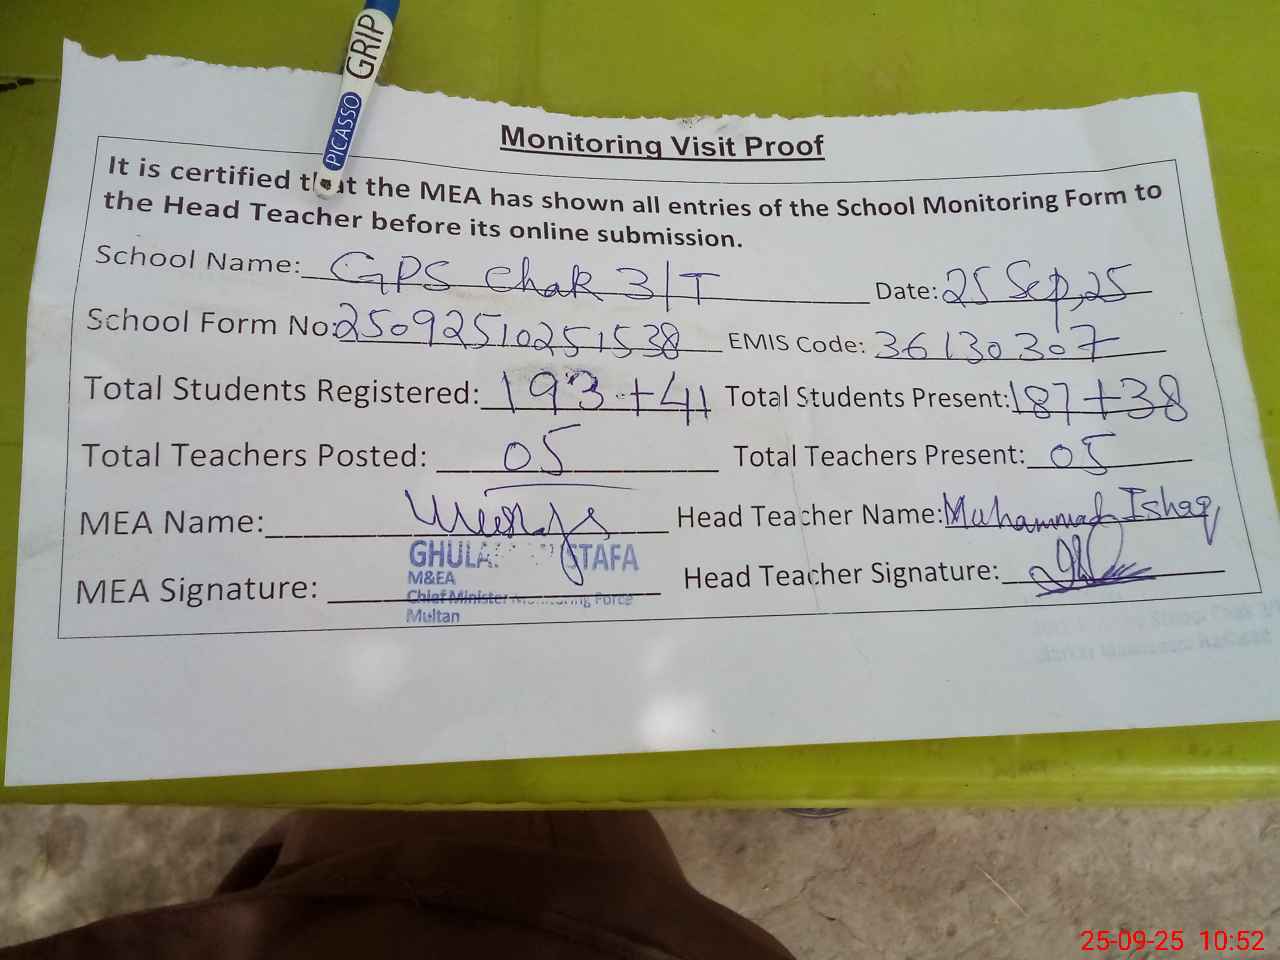 PICASSO GRIP
Monitoring Visit Proof
It is certified that the MEA has shown all entries of the School Monitoring Form to
the Head Teacher before its online submission.
School Name: GPS Chak 3/T Date: 25 Sep, 25
School Form No: 25092510251538 EMIS Code: 36130307
Total Students Registered: 193 + 41 Total Students Present: 187 + 38
Total Teachers Posted: 05 Total Teachers Present: 05
MEA Name: Head Teacher Name: Muhammad Ishaq
GHULA STAFA
M&EA
MEA Signature: Head Teacher Signature:
Chief Minister Monitoring Force
Multan
25-09-25 10:52